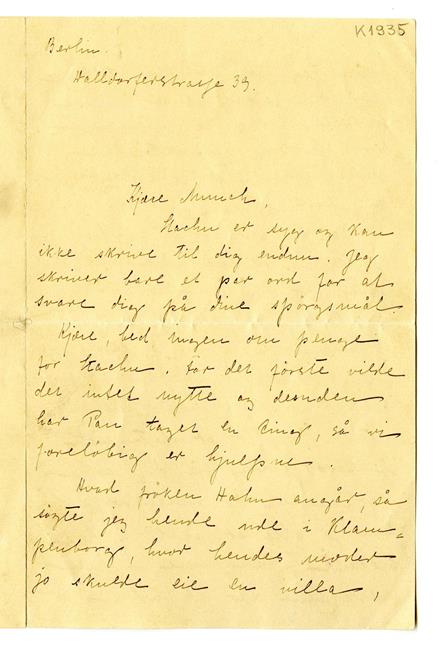 K1935
Berlin.
Walldorferstrasse 39.
Kjære Munch,
Stachu er syg og kan
ikke skrive til dig endnu. Jeg
skriver bare et par ord for at
svare dig på dine spörgsmål.
Kjære, bed ingen om penge
for Stachu. For det förste vilde
det intet nytte og desuden
har Pan taget en ting, så vi
forelöbig er hjulpne.
Hvad fröken Hahn angår, så
sögte jeg hende ude i Klam=
penborg, hvor hendes moder
jo skulde eie en villa,